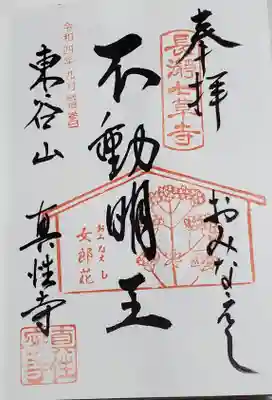 奉拝
長瀞七草寺
おみなえし
不動明王
おみなえし
女郎花
令和四年九月吉日
東谷山
真性寺